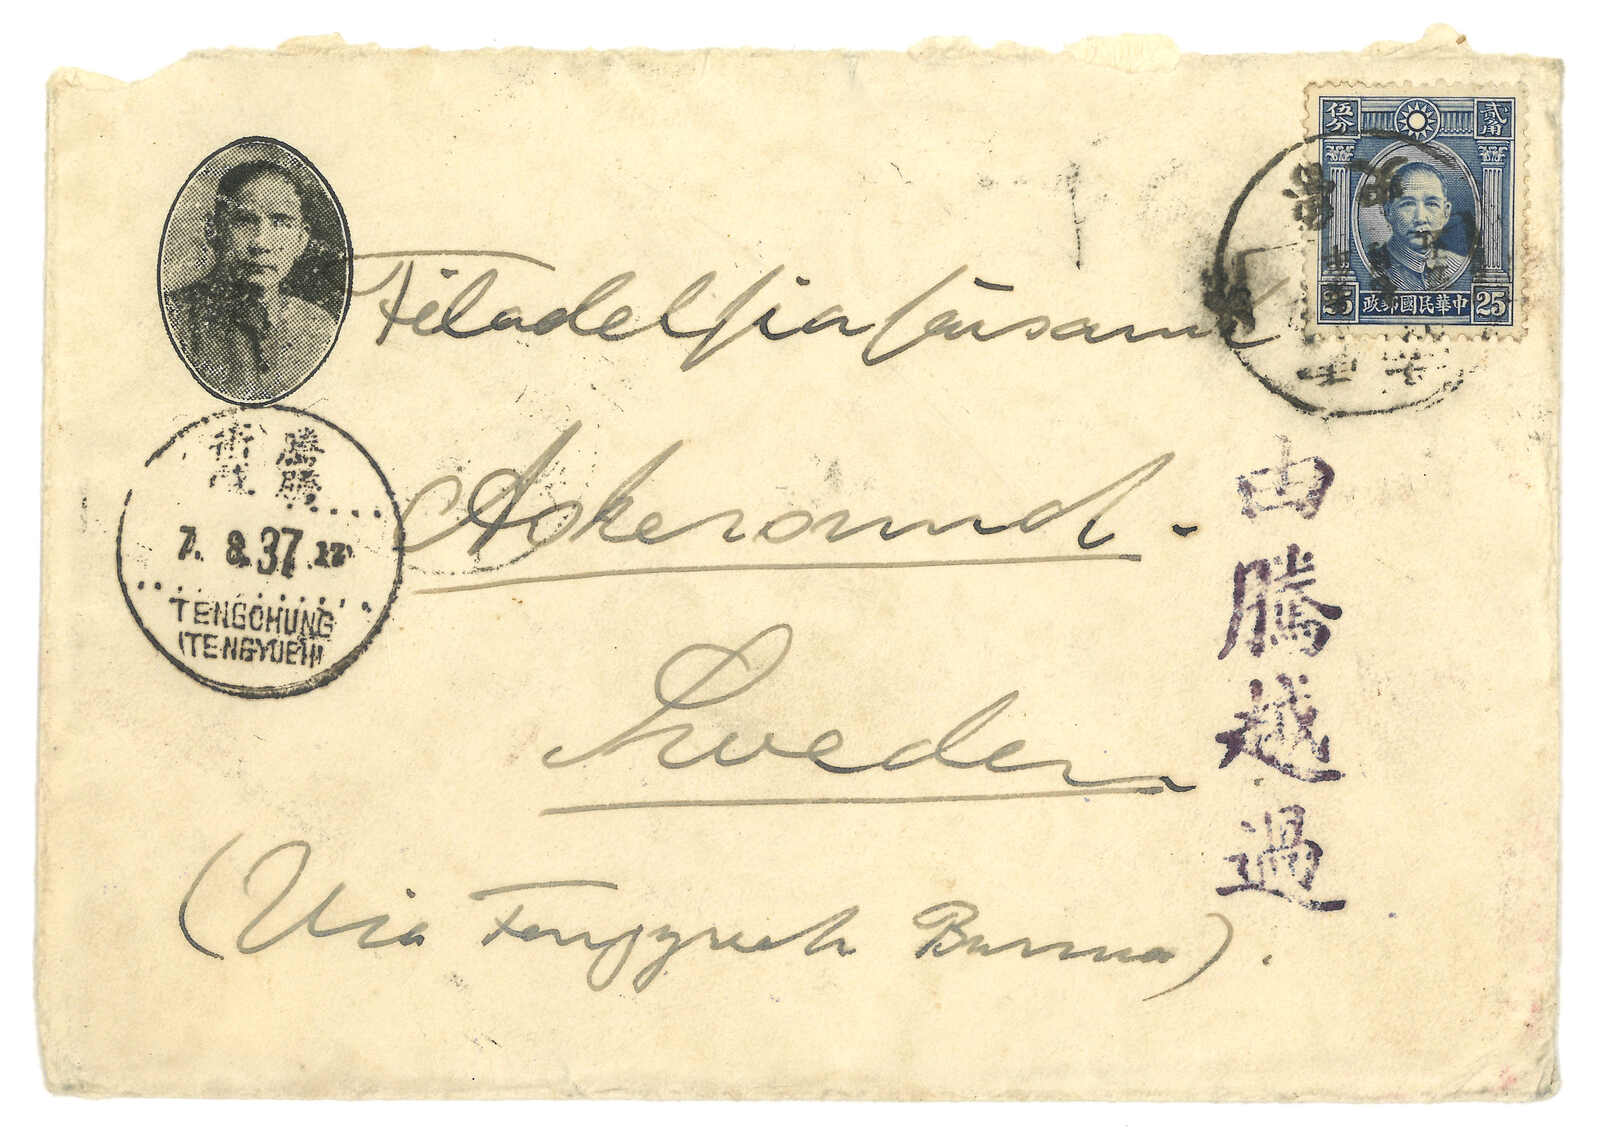 伍分 貳角
25 中華民國郵政 25
Filadelfiaförsaml
Askersund.
Sweden
(Via Tengyueh Burma).
由騰越過
騰衝
7. 8. 37
TENGCHUNG
(TENGYUEH)